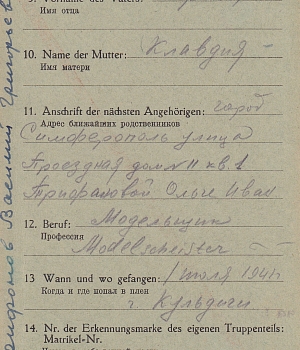 9. Vorname des Vaters:
Имя отца
10. Name der Mutter: Клавдия
Имя матери
11. Anschrift der nächsten Angehörigen: город
Адрес ближайших родственников
Симферополь улица
Проездная дом № 11 кв. 1
Трифоновой Ольге Иван
12. Beruf: Модельщик
Профессия
Modelscheister
13 Wann und wo gefangen: 1 июля 1941 г
Когда и где попал в плен
г. Кульдиги
14. Nr. der Erkennungsmarke des eigenen Truppenteils:
Matrikel-Nr.
Василий Григорьев